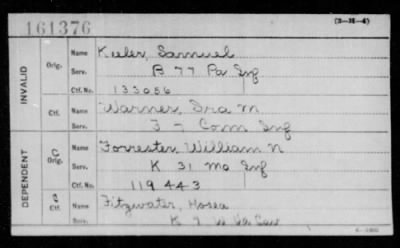 161376
(3-21-4)
INVALID
Orig.
Name Keeler, Samuel
Serv. B 77 Pa Inf
Ctf. No. 133056
Ctf.
Name Warner, Ira M
Serv. F 7 Conn Inf
DEPENDENT
C
Orig.
Name Forrester, William N
Serv. K 31 Mo Inf
Ctf. No. 119443
C
Ctf.
Name Fitzwater, Hosea
Serv. K 7 W Va Cav